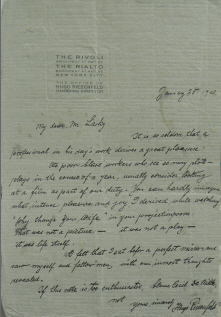 THE RIVOLI
THE RIALTO
NEW YORK CITY
THE OFFICE OF
HUGO RIESENFELD
MANAGING DIRECTOR
January 28th
My dear Mr Lasky
It is so seldom that a
professional in his day's work derives a great pleasure.
We poor slave workers who see so many photo-
plays in the course of a year, usually consider looking
at a film as part of our duty. You can hardly imagine
what intense pleasure and joy I derived while watching
"Why Change Your Wife" in your projection room.
That was not a picture — it was not a play —
it was life itself.
I felt that I sat before a perfect mirror and
saw myself and fellow men, with our inmost thoughts
revealed.
If this note is too enthusiastic, blame Cecil De Mille,
not yours sincerely Hugo Riesenfeld